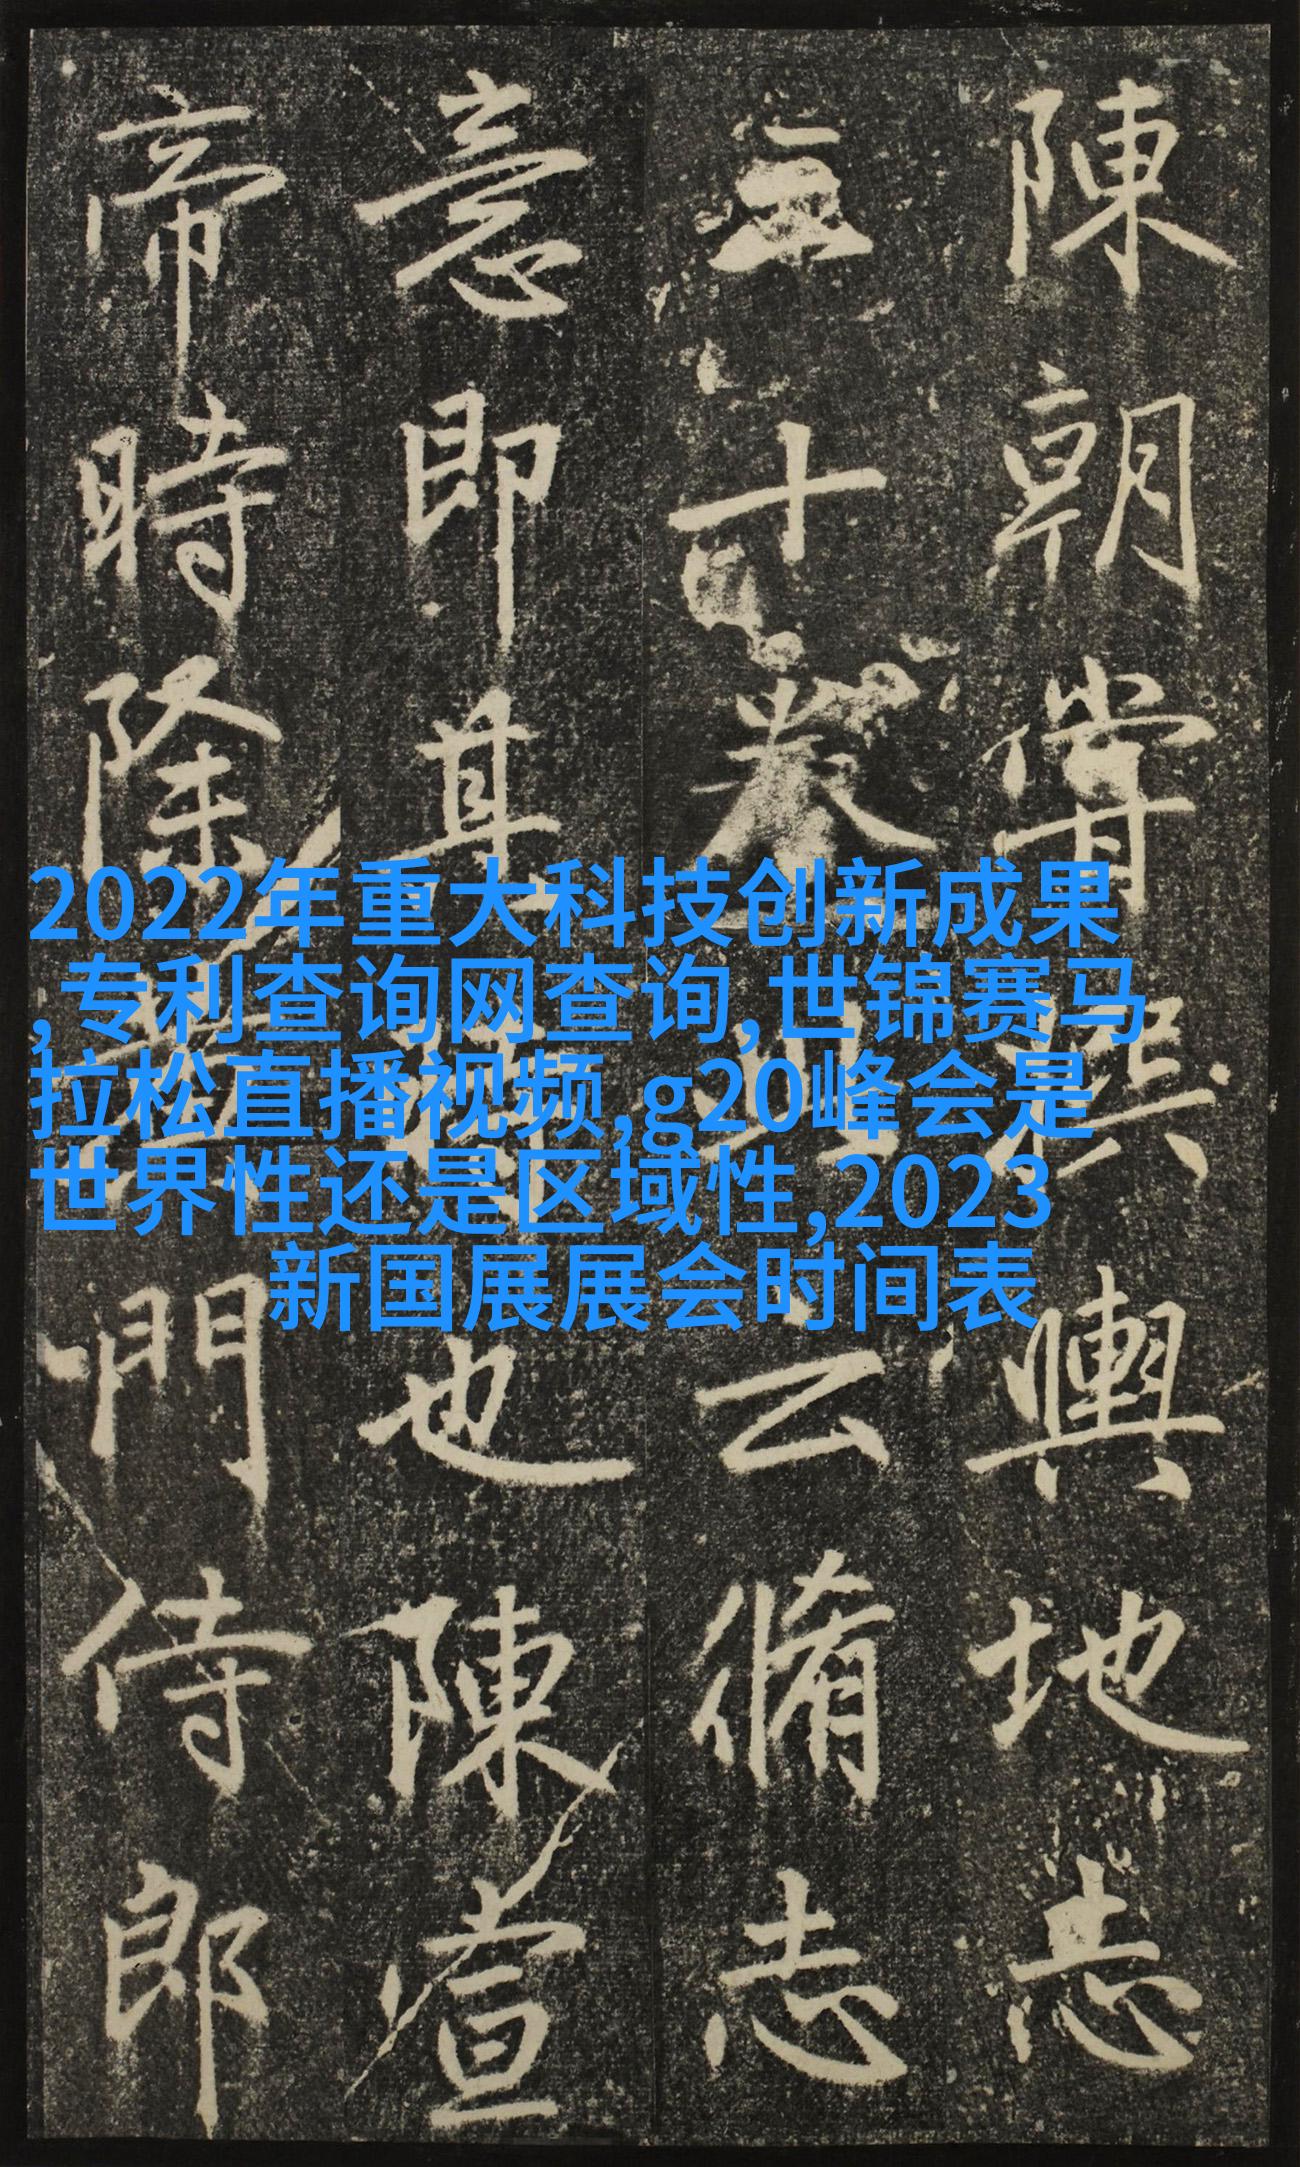 陳朝嘗撰輿地志
三十卷云脩志
意即其也陳宣
帝時除黃門侍郎
2022年重大科技创新成果
,专利查询网查询,世锦赛马
拉松直播视频,g20峰会是
世界性还是区域性,2023
新国展展会时间表